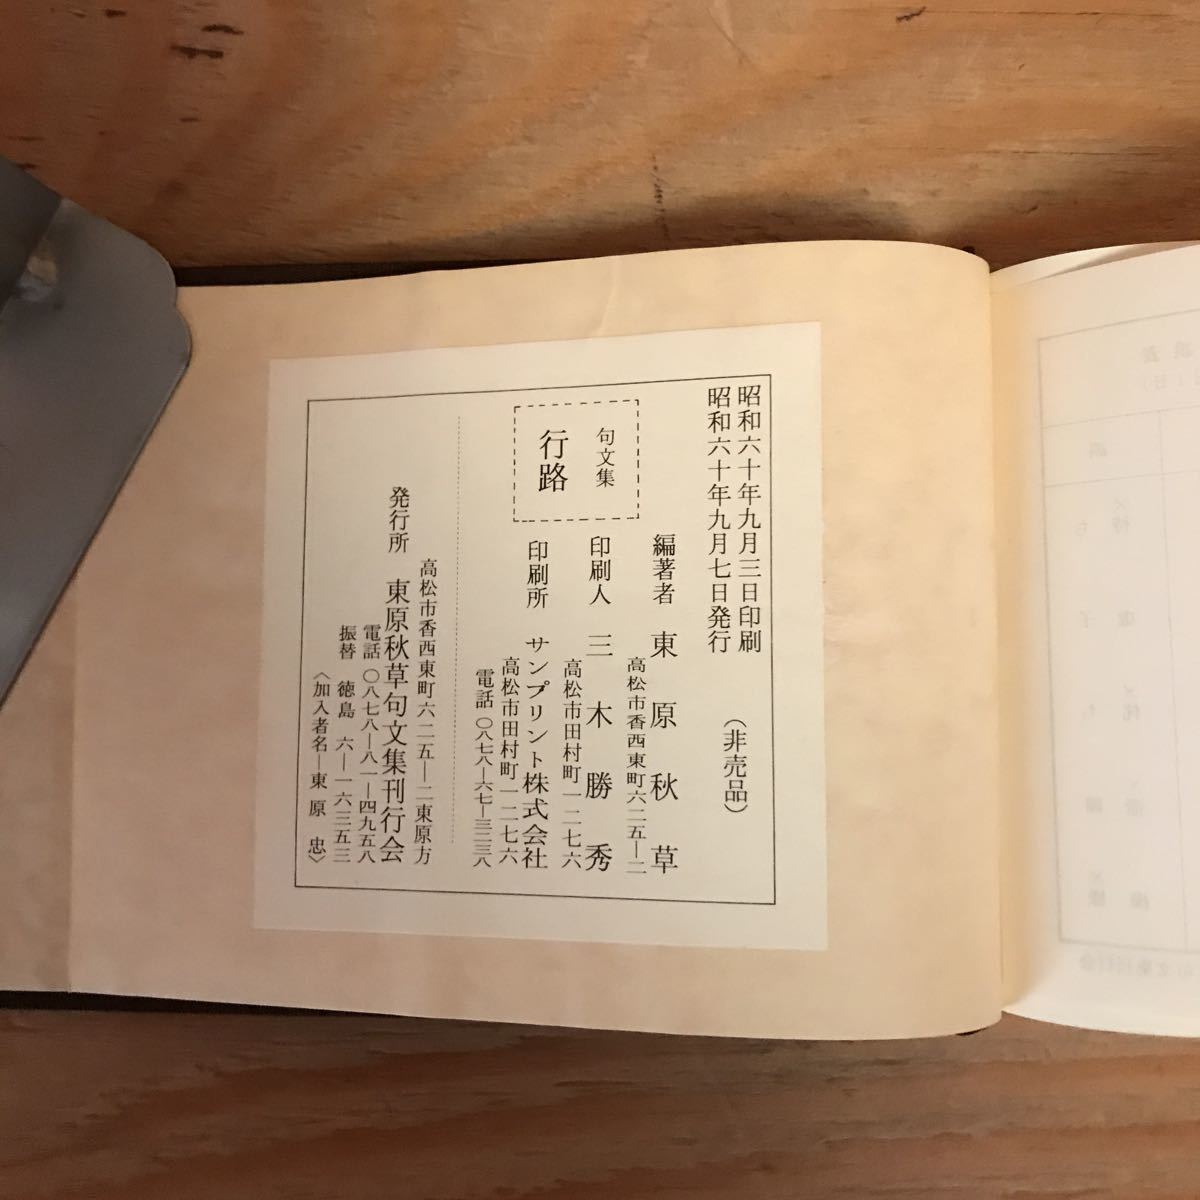 昭和六十年九月三日印刷
昭和六十年九月七日発行
(非売品)
句文集
行路
編著者 東原秋草
高松市香西東町六二五―二
印刷人 三木勝秀
高松市田村町一二七六
印刷所 サンプリント株式会社
高松市田村町一二七六
電話 〇八七八―六七―三二三八
高松市香西東町六二五―二東原方
発行所 東原秋草句文集刊行会
電話 〇八七八―八一―四九五八
振替 徳島 六―一六三五三
〈加入者名―東原 忠〉